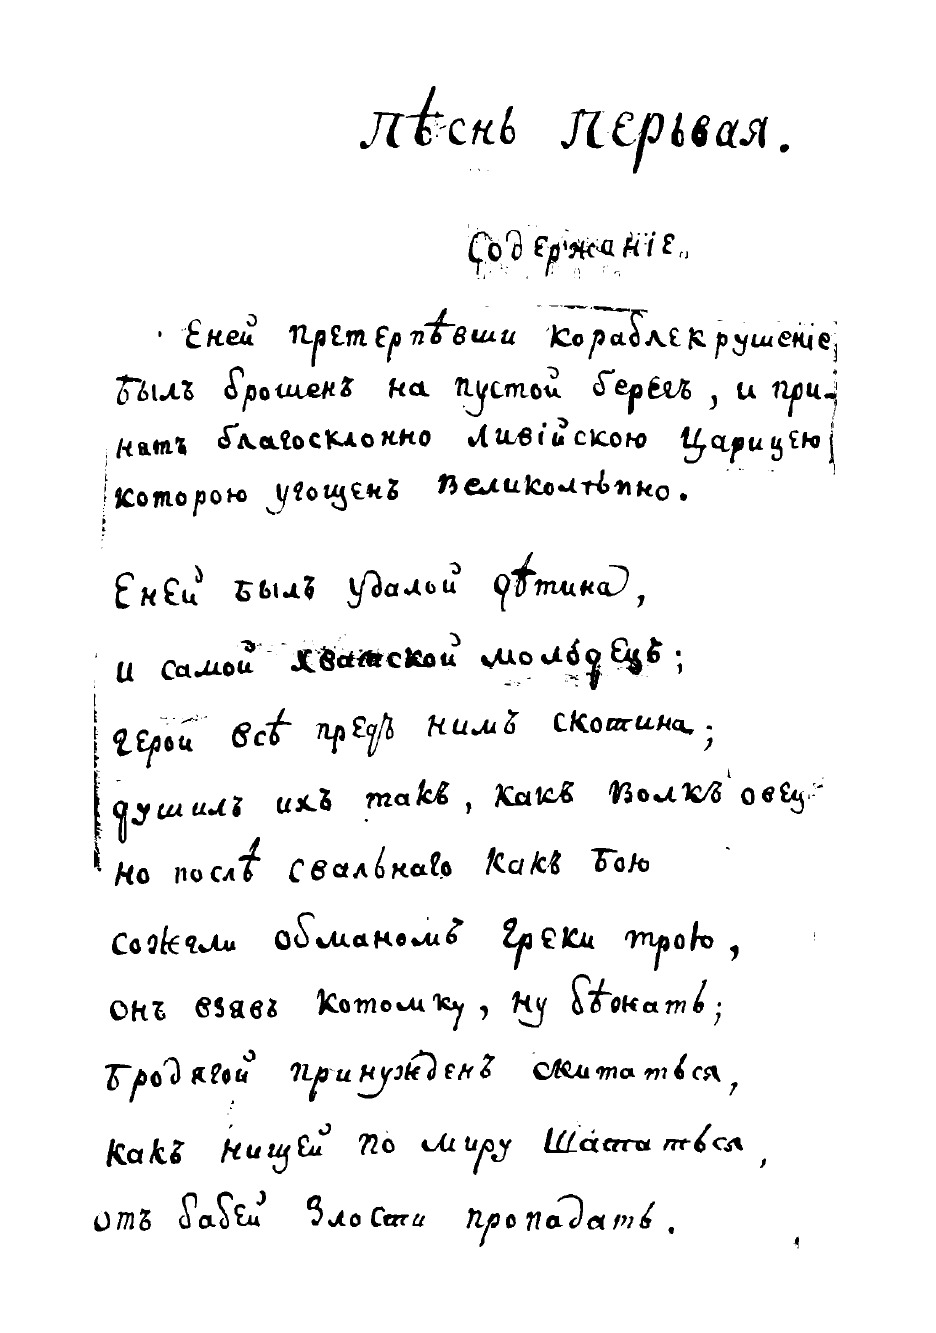 Пѣснь Перьвая.
Содержаніе.
Еней претерпѣвши кораблекрушеніе,
былъ брошенъ на пустой берегъ, и при-
нятъ благосклонно Ливійскою Царицею
которою угощенъ великолѣпно.
Еней былъ удалой дѣтина,
и самой хватской молодецъ;
герои всѣ предъ нимъ скотина;
душилъ ихъ такъ, какъ волкъ овец
но послѣ свальнаго какъ бою
сожгли обманомъ греки трою,
онъ взявъ котомку, ну бѣжать;
бродягой принужденъ скитаться,
какъ нищей по миру шататься,
отъ бабей злости пропадать.